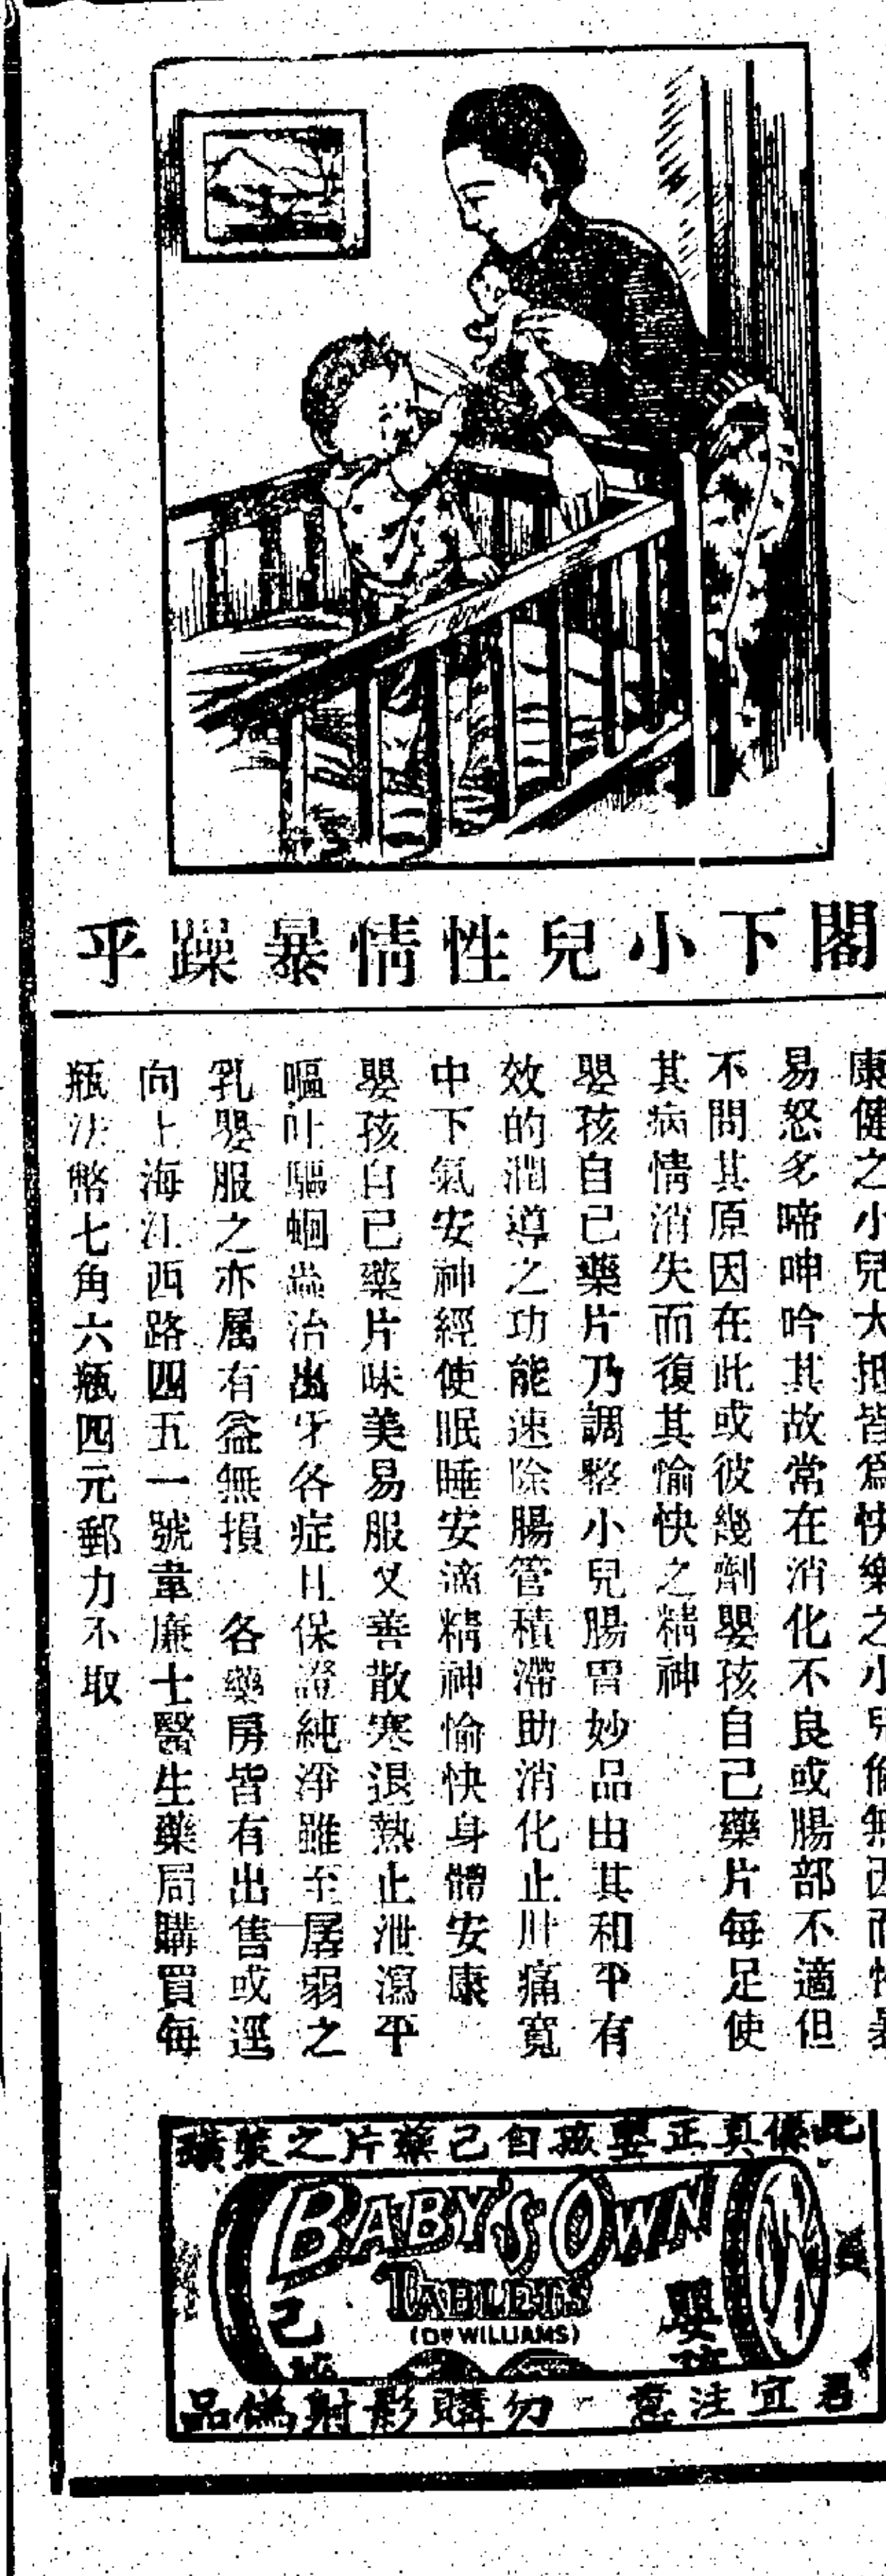 閣下小兒性情暴躁乎
康健之小兒大抵皆爲快樂之小兒倘無因而性暴
易怒多啼呻吟其故常在消化不良或腸部不適但
不問其原因在此或彼幾劑嬰孩自己藥片每足使
其病情消失而復其愉快之精神
嬰孩自己藥片乃調整小兒腸胃妙品由其和平有
效的潤導之功能速除腸管積滯助消化止肚痛寬
中下氣安神經使眠睡安適精神愉快身體安康
嬰孩自己藥片味美易服又善散寒退熱止泄瀉平
嘔吐驅蛔蟲治出牙各症且保證純淨雖至孱弱之
乳嬰服之亦屬有益無損　各藥房皆有出售或逕
向上海江西路四五一號韋廉士醫生藥局購買每
瓶法幣七角六瓶四元郵力不取
此係真正嬰孩自己藥片之裝璜
BABY'S OWN
TABLETS
(DR WILLIAMS)
嬰孩
己
君宜注意　勿購影射僞品